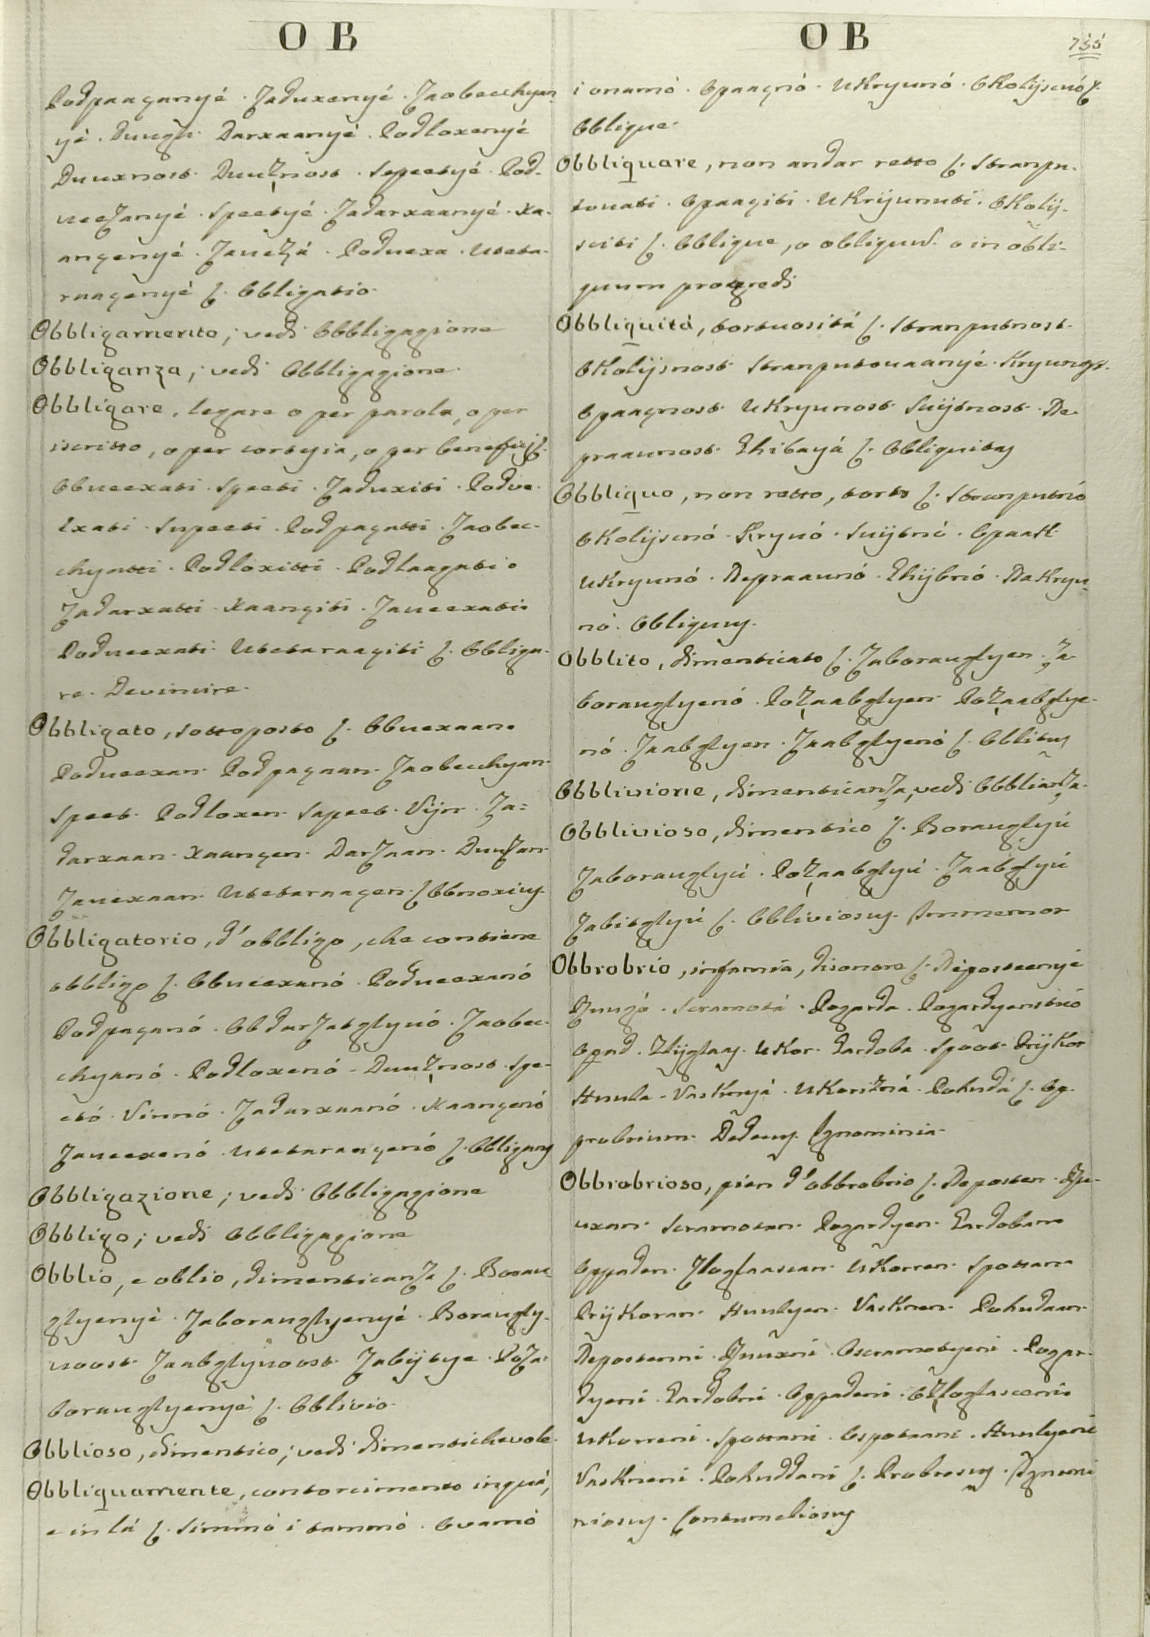 OB
Podpaaçanyé · Zaduxenyé · Zaobecchyan
yé · Duugh · Darxaanyé · Podloxenyé
Duuxnost · Duuxnost · Sapeetyé · Pod-
veeZanyé · Speetyé · Zadarxaanyé · Xa-
ançenyé · Zavezá · Podvexa · Uteta-
raaçenyé ʃ. Obligatio
Obbligamento, vedi Obbligagione
Obbliganza, vedi Obbligagione
Obbligare, legare o per parola, o per
iscritto, o per cortesia, o per beneficij ʃ.
Obveexati · Speeti · Zaduxiti · Podve-
exati · Sapeeti · Podpaçatti · Zaobec-
chyatti · Podloxitti · Podlaagati
Zadarxatti · Xaançiti · Zaveexati
Podveexati · Utetaraaçiti ʃ. Obliga-
re · Devincire
Obbligato, sottoposto ʃ. Obvexaan
Podveexan · Podpaçaan · Zaobecchyan
Speet · Podloxen · Sapeet · Vijn · Za-
darxaan · Xaançen · DarZaan · DuuZan
Zavexaan · Utetaraaçen ʃ. Obnoxius
Obbligatorio, d'obbligo, che contiene
obbligo ʃ. Obveexanó · Podveexanó
Podpaçanó · ObdarZatglyvó · Zaobec-
chyanó · Podloxenó · Duuxnost · Spe-
etó · Vinnó · Zadarxaanó · Xaançenó
Zaveexenó · Utetaraaçenó ʃ. Obligans
Obbligazione, vedi Obbligagione
Obbligo, vedi Obbligagione
Obblio, e oblio, dimenticanZa ʃ. Borau-
glyenyé · Zaborauglyenyé · Boraugly-
voost · Zaabglyvoost · Zabijtye · PoZa-
borauglyenyé ʃ. Oblivio
Obblioso, dimentico, vedi dimentichevole
Obbliquamente, contorcimento in quá,
e in lá ʃ. Simmó i tammó · Ovamó
OB
i onamó · Opaaçnó · Ukryvnó · Okolijscnó ʃ.
Oblique
Obbliquare, non andar retto ʃ. Stranpu-
tovati · Opaaçiti · Ukrijvnuti · Okolij-
sciti ʃ. Oblique, o obliquus o in obli-
quum progredi
Obbliquitá, tortuositá ʃ. Stranputnost
Okolijsnost · Stranputovaanyé · Kryvngs
Opaaçnost · Ukryvnost · Suijtnost · De-
praavnost · Ehibayá ʃ. Obliquitas
Obbliquo, non retto, torto ʃ. Stranputnó
Okolijscnó · Kryvó · Suijtnó · Opaak
Ukryvnó · Depraavnó · Ehijbnó · Dakryv-
nó · Obliquus
Obblito, dimenticato ʃ. Zaborauglyen · Za-
borauglyenó · PoZaabglyen · PoZaabglye-
nó · Zaabglyen · Zaabglyenó ʃ. Oblitus
Obblivione, dimenticanZa, vedi ObblianZa
Obblivioso, dimentico ʃ. Borauglyú
Zaborauglyú · PoZaabglyú · Zaabglyú
Zabitglyú ʃ. Obliviosus · Immemor
Obbrobrio, infamia, disonore ʃ. Diposteenyé
Pogarda · Pogardyenstvó
Ukor · Gardoba · Prijkor
Huula · Vasknyá · Ukorizná · Pohudá ʃ. Op-
probrium · Dedecus · Ignominia
Obbrobrioso, pien d'obbrobrio ʃ. Deposten
Scramotan · Pogardyen · Gardoban
Oppaden · Zloglaascan · Ukorren · Spottan
Prijkoran · Huulyen · Vasknen · Pohudaan
Depostenni · Oscramotyeni · Pogar-
dyeni · Gardobni · Oppadeni · OZloglasceni
Ukorreni · Spottani · Ospotaani · Huulyeni
Vaskneni · Pohuddani ʃ. Probrosus · Ignomi
niosus · Contumeliosus